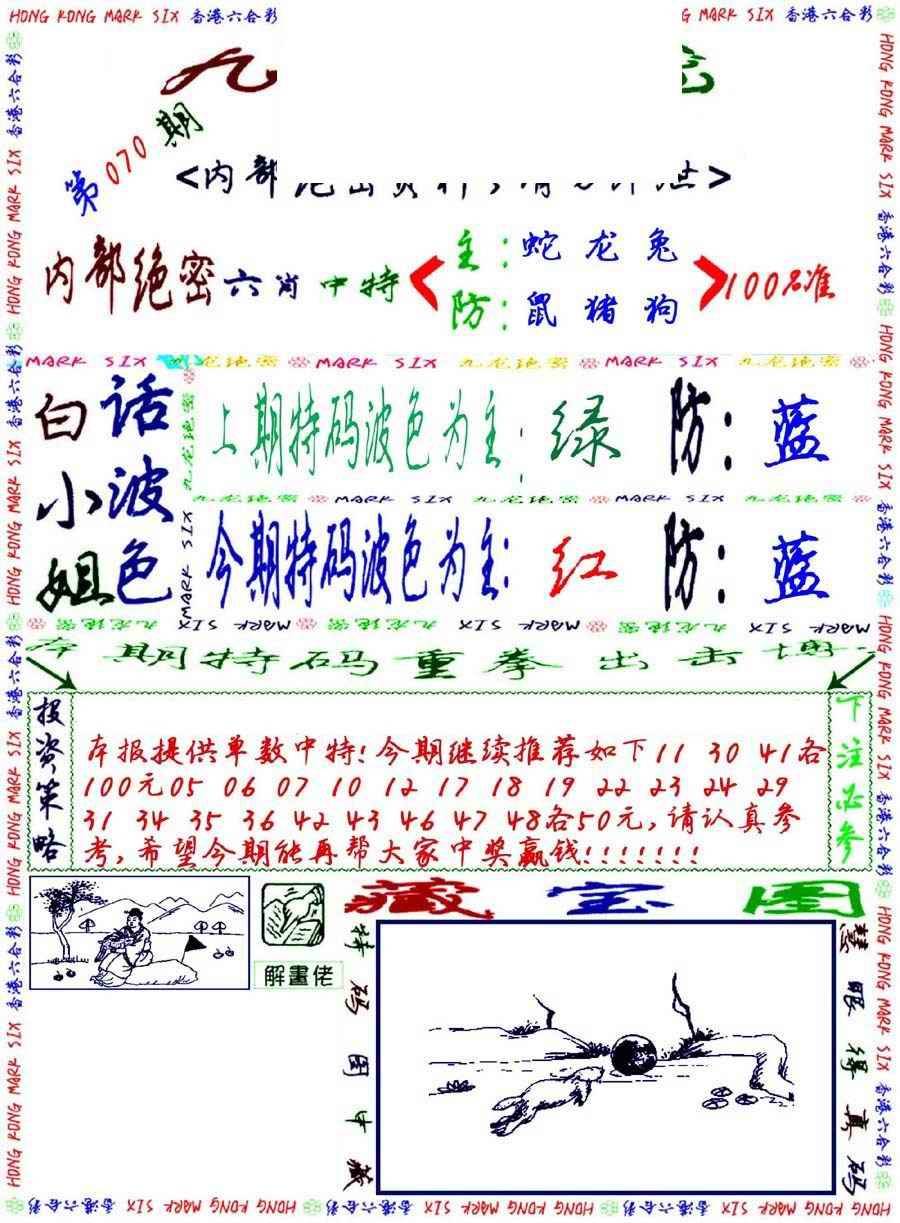 HONG KONG MARK SIX 香港六合彩
G MARK SIX 香港六合彩
九
第070期
<内部绝密资料,请
>
内部绝密六肖中特
主:蛇龙兔
防:鼠猪狗
100%准
MARK SIX 九龙绝密 MARK SIX 九龙绝密 MARK SIX 九龙绝密
白话
小波
姐色
上期特码波色为主:绿 防:蓝
九龙绝密 MARK SIX 九龙绝密 MARK SIX 九龙绝密
今期特码波色为主:红 防:蓝
九龙绝密 MARK SIX 九龙绝密 MARK SIX 九龙绝密 MARK SIX
本期特码重拳出击
投资策略
本报提供单数中特!今期继续推荐如下11 30 41各
100元05 06 07 10 12 17 18 19 22 23 24 29
31 34 35 36 42 43 46 47 48各50元,请认真参
考,希望今期能再帮大家中奖赢钱!!!!!!!
下注必参
解畫佬
藏宝图
特码图中藏
慧眼得真码
HONG KONG MARK SIX 香港六合彩 HONG KONG MARK SIX 香港六合彩 HONG KONG MARK SIX 香港六合彩